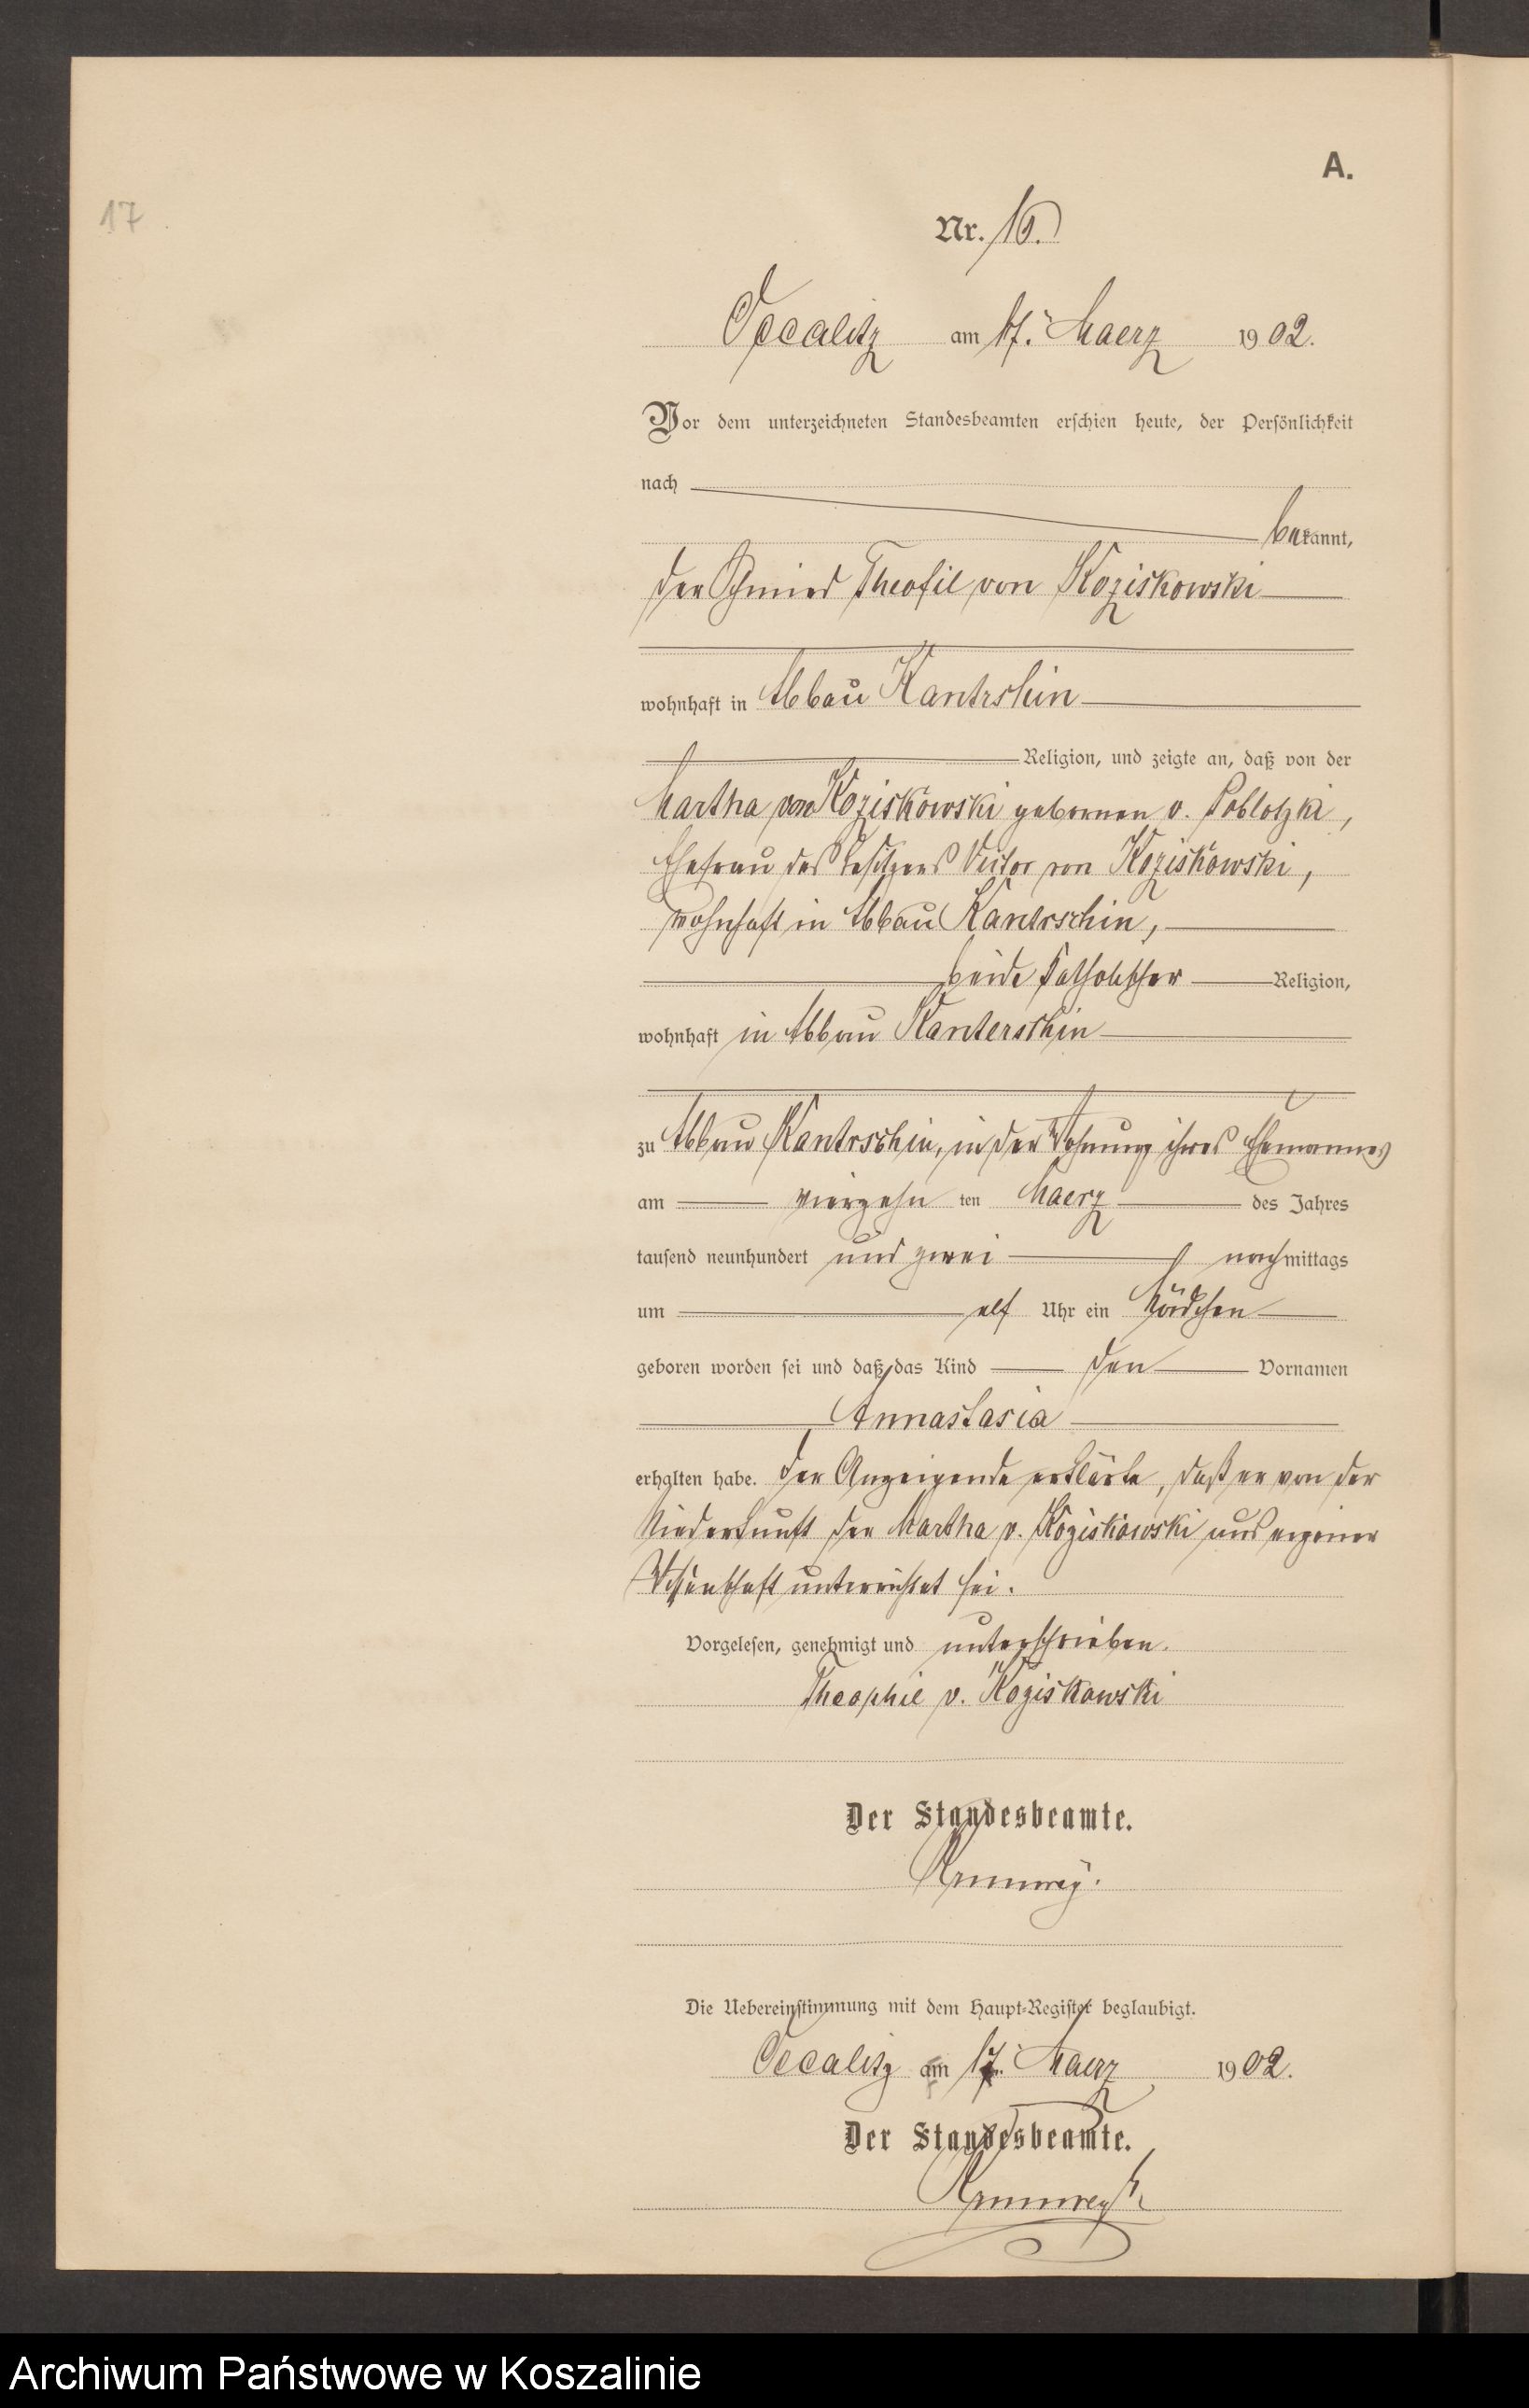 17
A.
Nr. 16.
Occalitz am 17. Maerz 1902.
Vor dem unterzeichneten Standesbeamten erschien heute, der Persönlichkeit
nach
bekannt,
der Schmied Theofil von Koziskowski
wohnhaft in Abbau Kantrshin
Religion, und zeigte an, daß von der
Martha von Koziskowski gebornen v. Poblotzki,
Ehefrau des Besitzers Victor von Koziskowski,
wohnhaft in Abbau Kantrschin,
beide katholischer Religion,
wohnhaft in Abbau Kanterschin
zu Abbau Kantrschin, in der Wohnung ihres Ehemannes
am vierzehn ten Maerz des Jahres
tausend neunhundert und zwei nachmittags
um elf Uhr ein Mädchen
geboren worden sei und daß das Kind den Vornamen
Annastasia
erhalten habe. Der Anzeigende erklärte, daß er von der
Niederkunft der Martha v. Koziskowski aus eigener
Wissenschaft unterrichtet sei.
Vorgelesen, genehmigt und unterschrieben.
Theophil v. Koziskowski
Der Standesbeamte.
Die Uebereinstimmung mit dem Haupt-Register beglaubigt.
Occalitz am 17. Maerz 1902.
Der Standesbeamte.
Archiwum Państwowe w Koszalinie